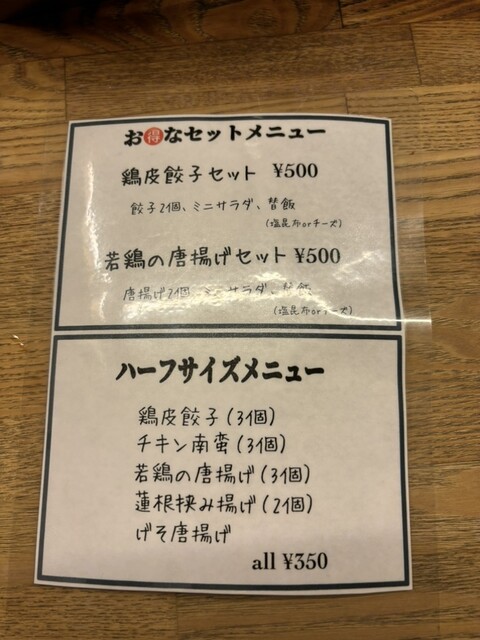 お得なセットメニュー
鶏皮餃子セット ¥500
餃子2個、ミニサラダ、替飯
(塩昆布orチーズ)
若鶏の唐揚げセット ¥500
唐揚げ2個、ミニサラダ、替飯
(塩昆布orチーズ)
ハーフサイズメニュー
鶏皮餃子(3個)
チキン南蛮(3個)
若鶏の唐揚げ(3個)
蓮根挟み揚げ(2個)
げそ唐揚げ
all ¥350